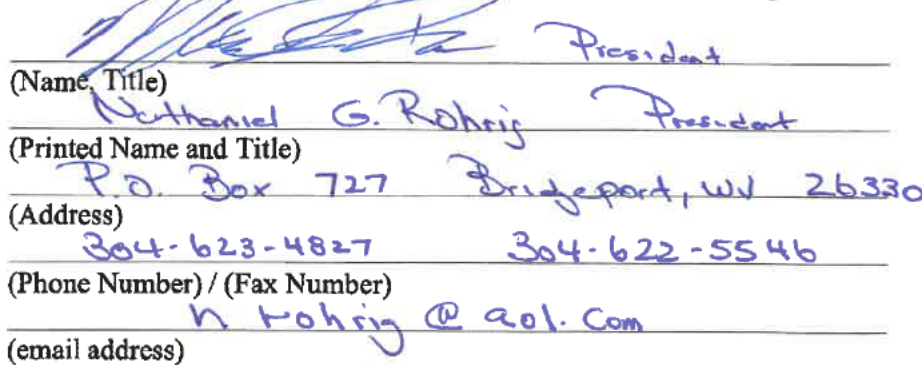 President
(Name, Title)
Nathaniel G. Rohrig President
(Printed Name and Title)
P.O. Box 727 Bridgeport, WV 26330
(Address)
304-623-4827 304-622-5546
(Phone Number) / (Fax Number)
nrohrig@aol.com
(email address)